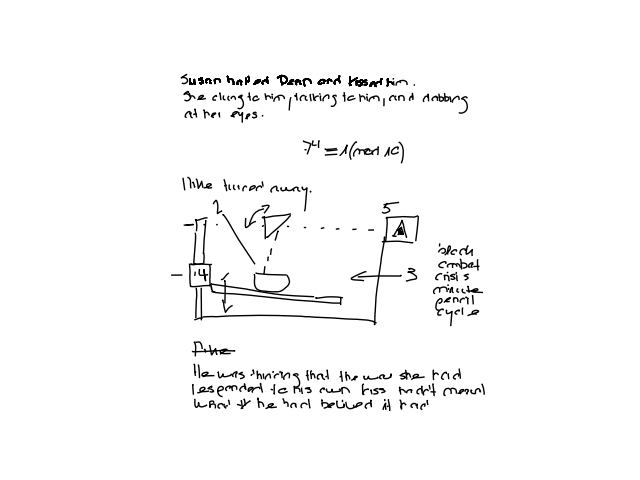 Susan halted Dean and kissed him.
She clung to him, talking to him, and dabbing
at her eyes.
7^4 ≡ 1 (mod 10)
Mike turned away.
2
5
4
3
black
combat
crisis
minute
pencil
cycle
He was thinking that the way she had
responded to his own kiss hadn't meant
what he had believed it had